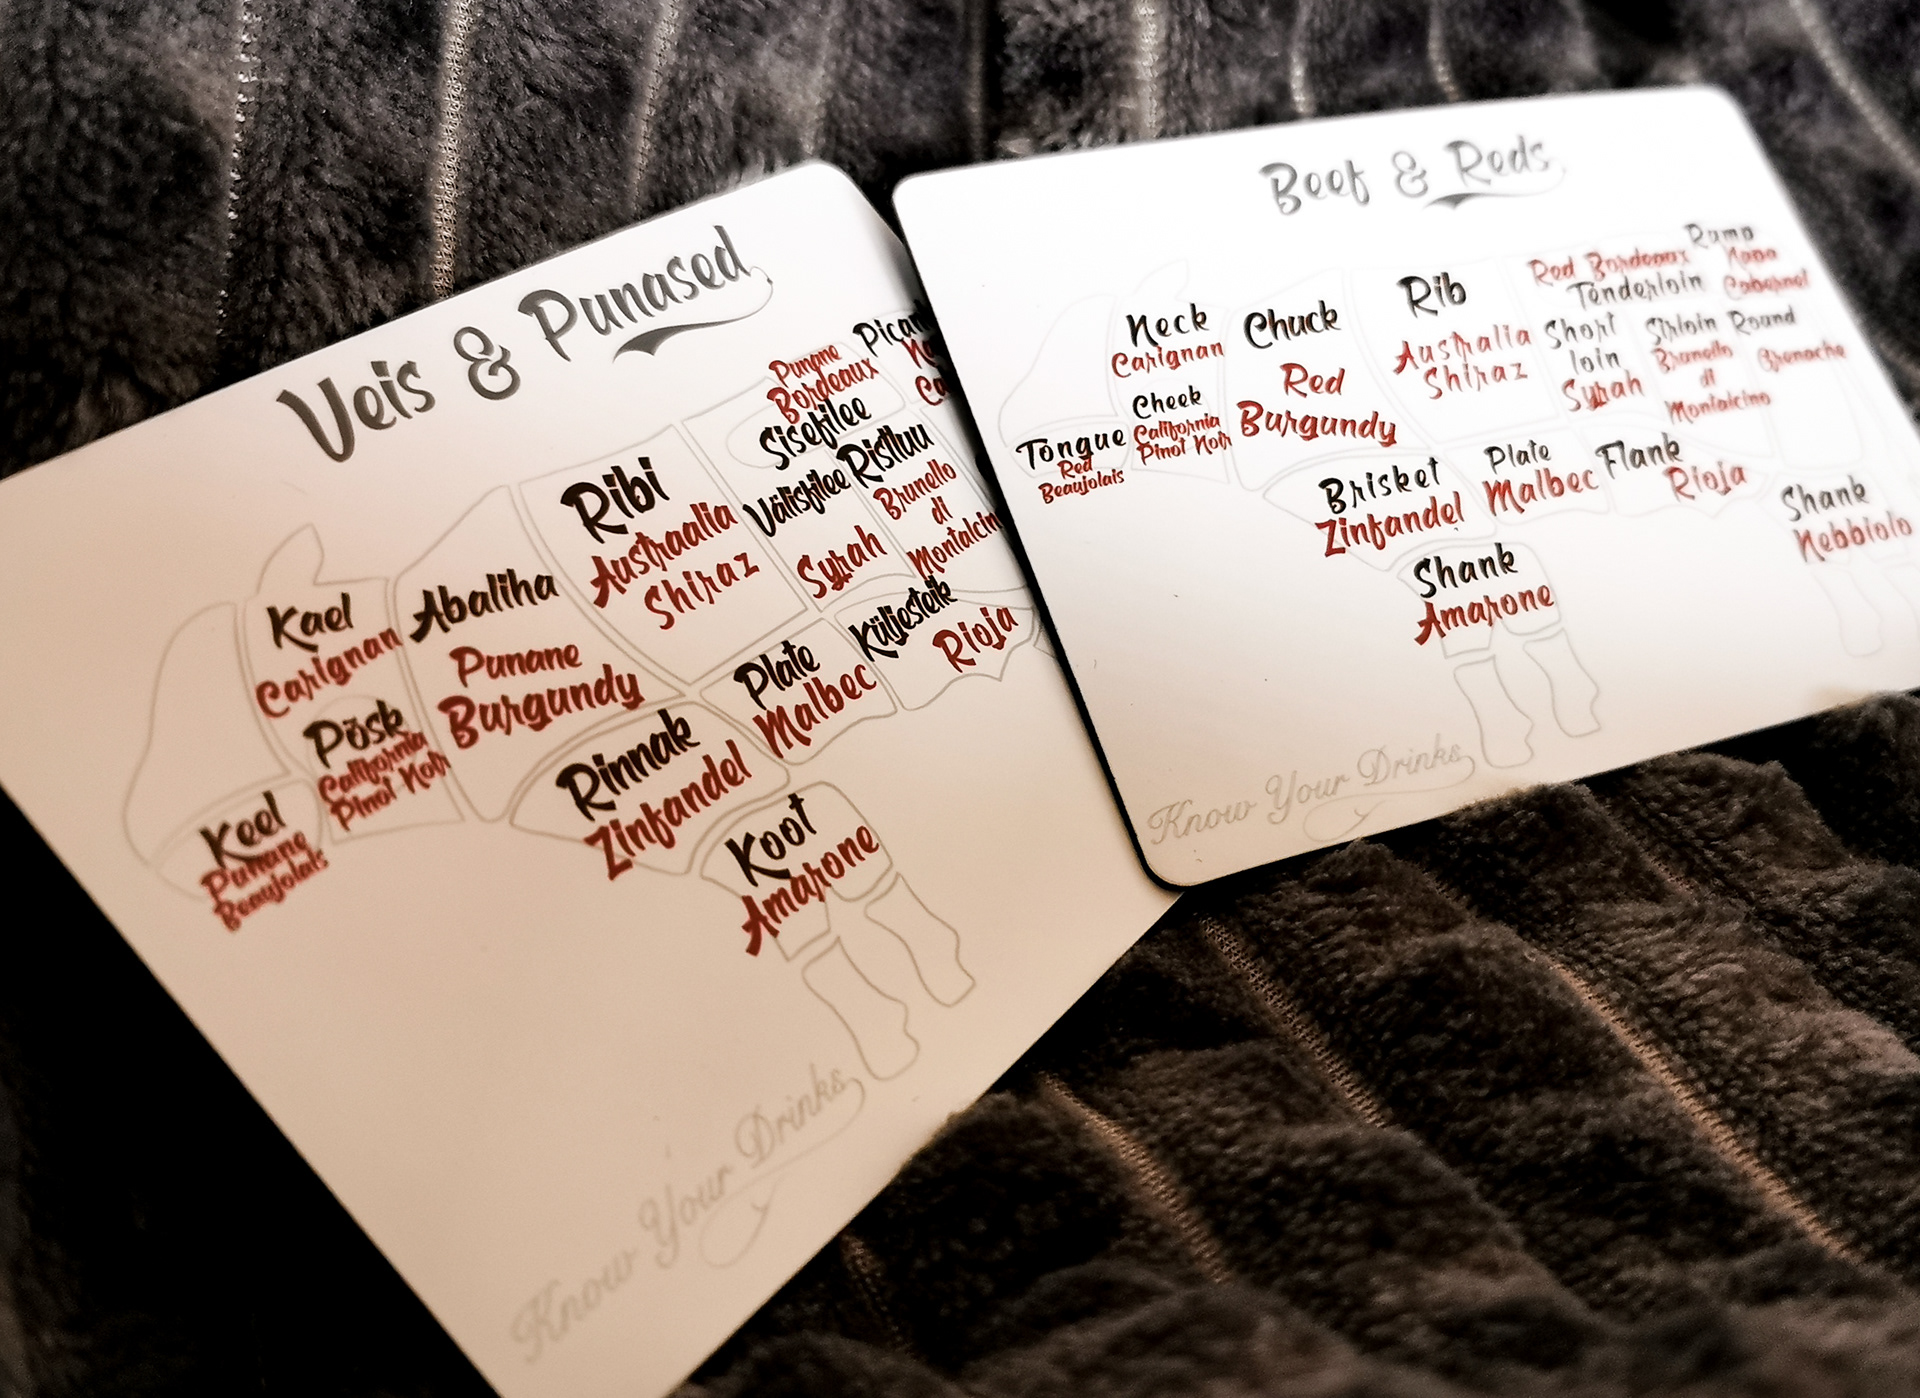 Veis & Punased
Punane
Bordeaux
Sisefilee
Ribi
Austraalia
Shiraz
Välisfilee
Syrah
Ristluu
Brunello
di
Abaliha
Punane
Burgundy
Kael
Carignan
Põsk
California
Pinot Noir
Keel
Punane
Beaujolais
Rinnak
Zinfandel
Plate
Malbec
Küljesteik
Rioja
Koot
Amarone
Know Your Drinks
Beef & Reds
Neck
Carignan
Cheek
California
Pinot Noir
Tongue
Red
Beaujolais
Chuck
Red
Burgundy
Rib
Australia
Shiraz
Red Bordeaux
Tenderloin
Rump
Napa
Cabernet
Short
loin
Syrah
Sirloin
Brunello
di
Montalcino
Round
Grenache
Brisket
Zinfandel
Plate
Malbec
Flank
Rioja
Shank
Nebbiolo
Shank
Amarone
Know Your Drinks